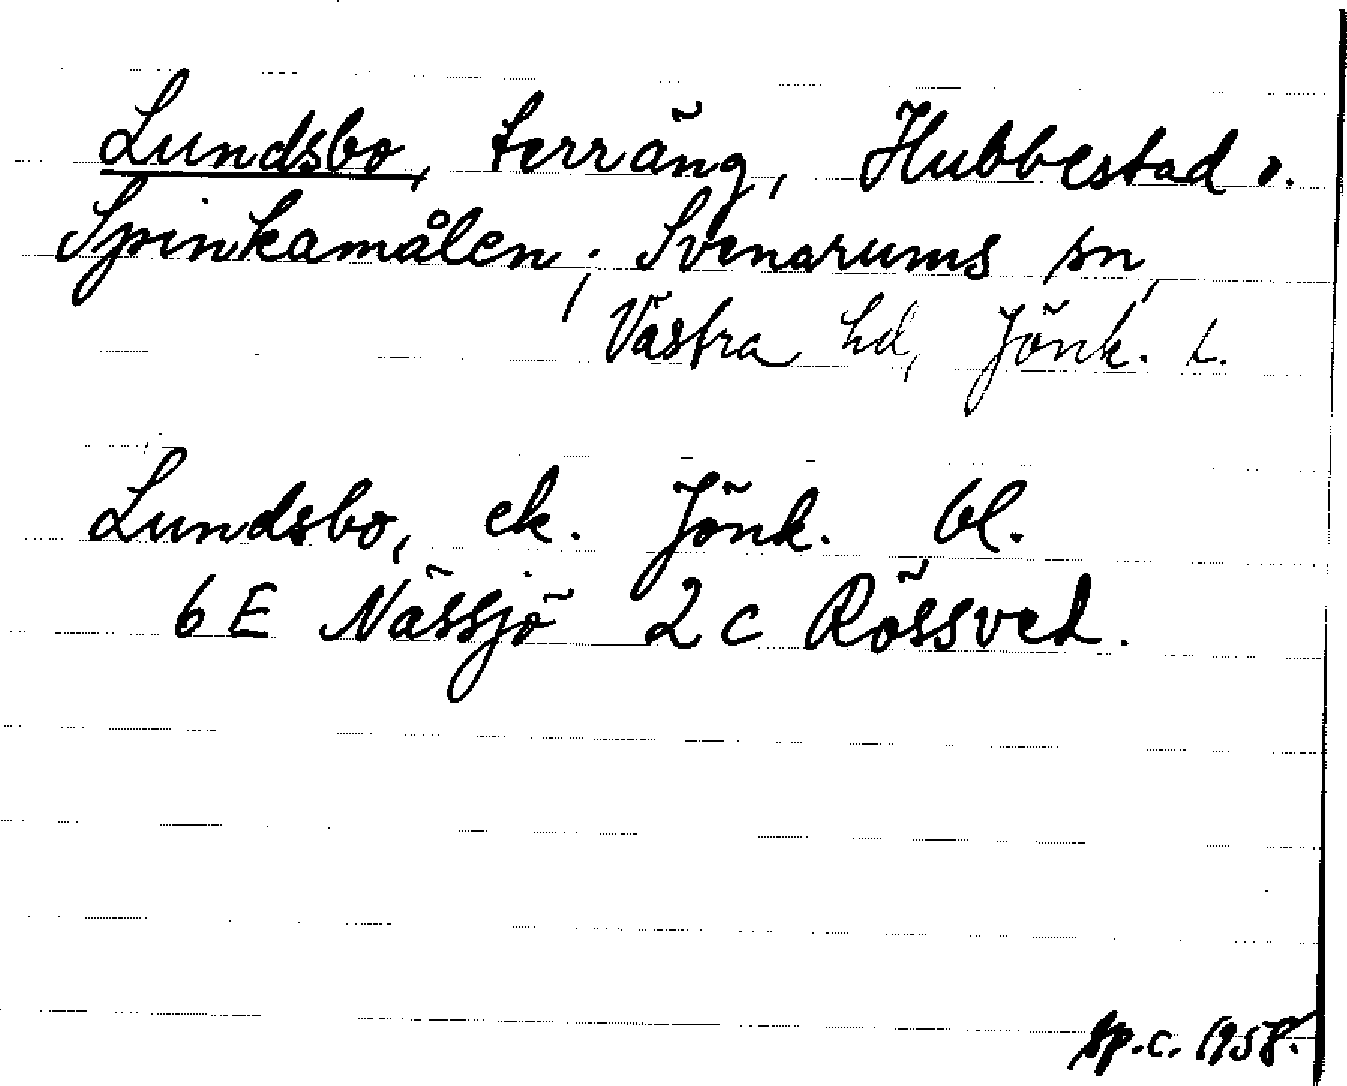 Lundsbo, terräng, Hubbestad o.
Spinkamålen; Svenarums sn,
Västra hd, Jönk. l.
Lundsbo, ek. Jönk. bl.
6 E Nässjö 2 c Rössved.
sp.c. 1958.